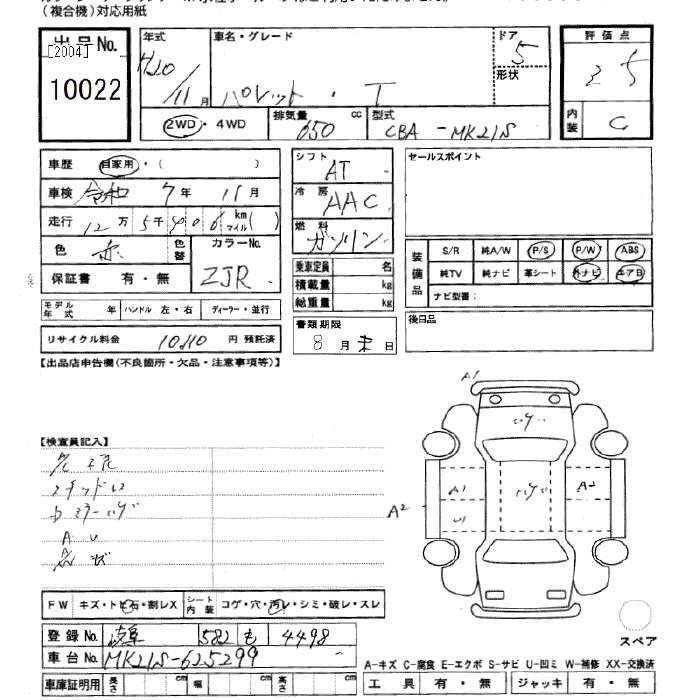 （複合機）対応用紙
出品No.
[2004]
10022
年式 H20/11月
車名・グレード パレット・T
ドア 5
形状
評価点 3.5
内装 C
2WD・4WD
排気量 650 cc
型式 CBA-MK21S
車歴 自家用・（ ）
車検 令和 7年 11月
走行 12万5千406 km マイル( )
色 赤 色替
カラーNo. ZJR
保証書 有・無
モデル年式 年 ハンドル 左・右 ディーラー・並行
リサイクル料金 円 預託済
シフト AT
冷房 AAC
燃料 ガソリン
乗車定員 名
積載量 kg
総重量 kg
書類期限
8月末日
セールスポイント
装備品
S/R 純A/W P/S P/W ABS
純TV 純ナビ 革シート 外ナビ エアB
ナビ型番：
後日品
【出品店申告欄(不良箇所・欠品・注意事項等)】
【検査員記入】
スタッドレス
A U
A1
ハゲ
A1
ハゲ
A2
U1
A2
FW キズ・トビ石・割レX
シート内装 コゲ・穴・汚レ・シミ・破レ・スレ
登録No. 岐阜 582 も 4498
車台No. MK21S-625299
車庫証明用 長さ 幅 高さ
スペア
A-キズ C-腐食 E-エクボ S-サビ U-凹ミ W-補修 XX-交換済
工具 有・無 ジャッキ 有・無